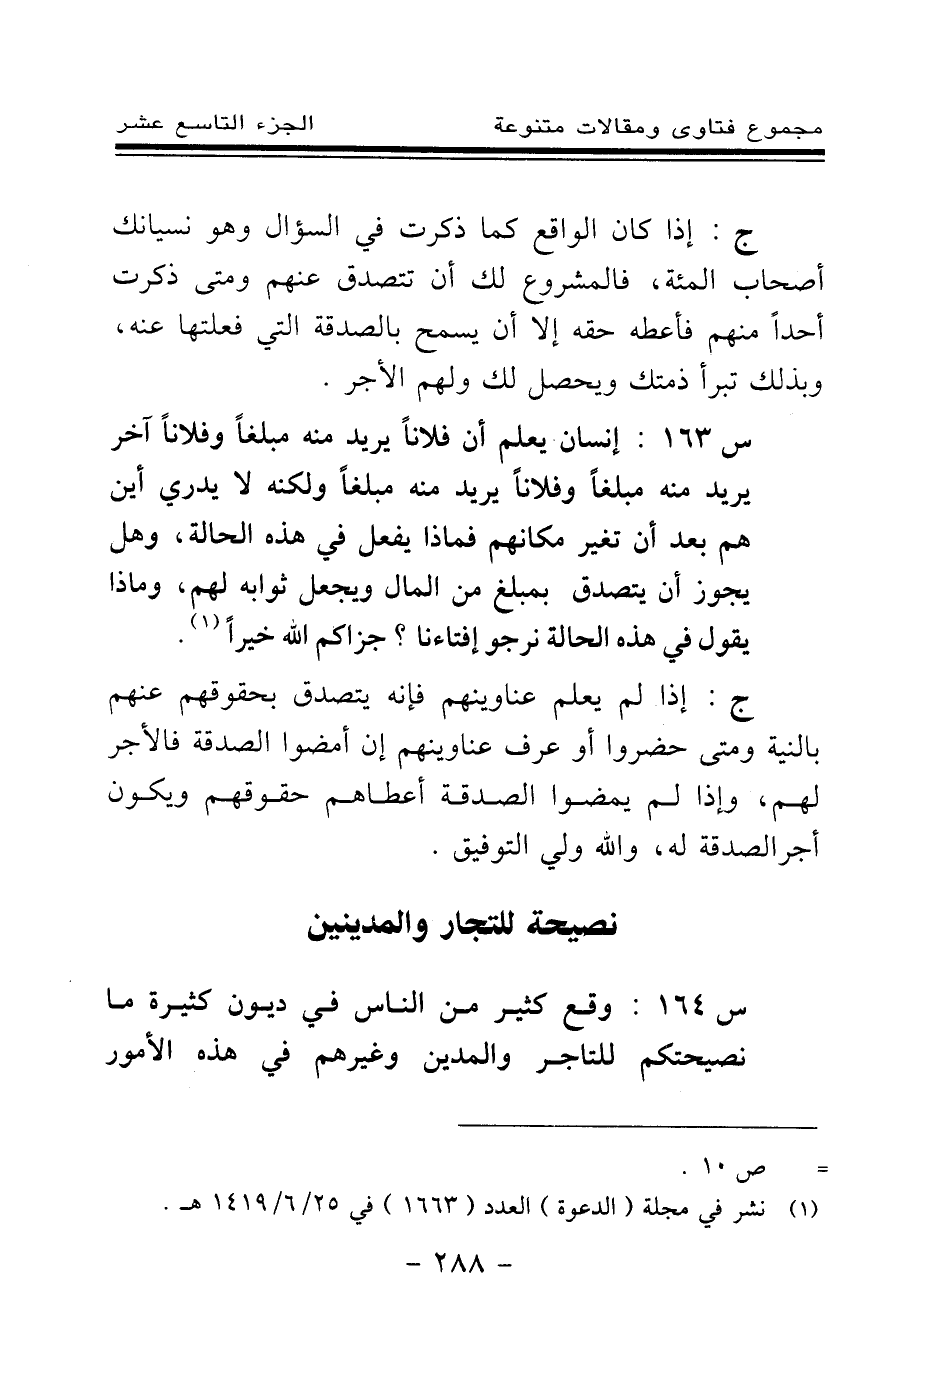 مجموع فتاوى ومقالات متنوعة الجزء التاسع عشر
ج : إذا كان الواقع كما ذكرت في السؤال وهو نسيانك
أصحاب المئة، فالمشروع لك أن تتصدق عنهم ومتى ذكرت
أحداً منهم فأعطه حقه إلا أن يسمح بالصدقة التي فعلتها عنه،
وبذلك تبرأ ذمتك ويحصل لك ولهم الأجر .
س ١٦٣ : إنسان يعلم أن فلاناً يريد منه مبلغاً وفلاناً آخر
يريد منه مبلغاً وفلاناً يريد منه مبلغاً ولكنه لا يدري أين
هم بعد أن تغير مكانهم فماذا يفعل في هذه الحالة، وهل
يجوز أن يتصدق بمبلغ من المال ويجعل ثوابه لهم، وماذا
يقول في هذه الحالة نرجو إفتاءنا ؟ جزاكم الله خيراً (١) .
ج : إذا لم يعلم عناوينهم فإنه يتصدق بحقوقهم عنهم
بالنية ومتى حضروا أو عرف عناوينهم إن أمضوا الصدقة فالأجر
لهم، وإذا لم يمضوا الصدقة أعطاهم حقوقهم ويكون
أجر الصدقة له، والله ولي التوفيق .
نصيحة للتجار والمدينين
س ١٦٤ : وقع كثير من الناس في ديون كثيرة ما
نصيحتكم للتاجر والمدين وغيرهم في هذه الأمور
= ص ١٠ .
(١) نشر في مجلة ( الدعوة ) العدد ( ١٦٦٣ ) في ١٤١٩/٦/٢٥ هـ .
- ٢٨٨ -